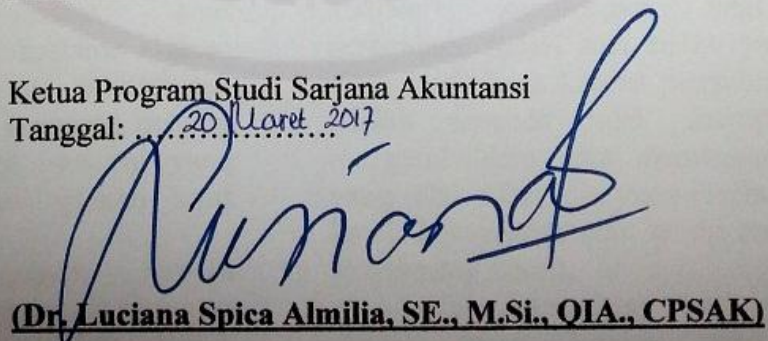 Ketua Program Studi Sarjana Akuntansi
Tanggal: ....20 Maret 2017
(Dr. Luciana Spica Almilia, SE., M.Si., QIA., CPSAK)